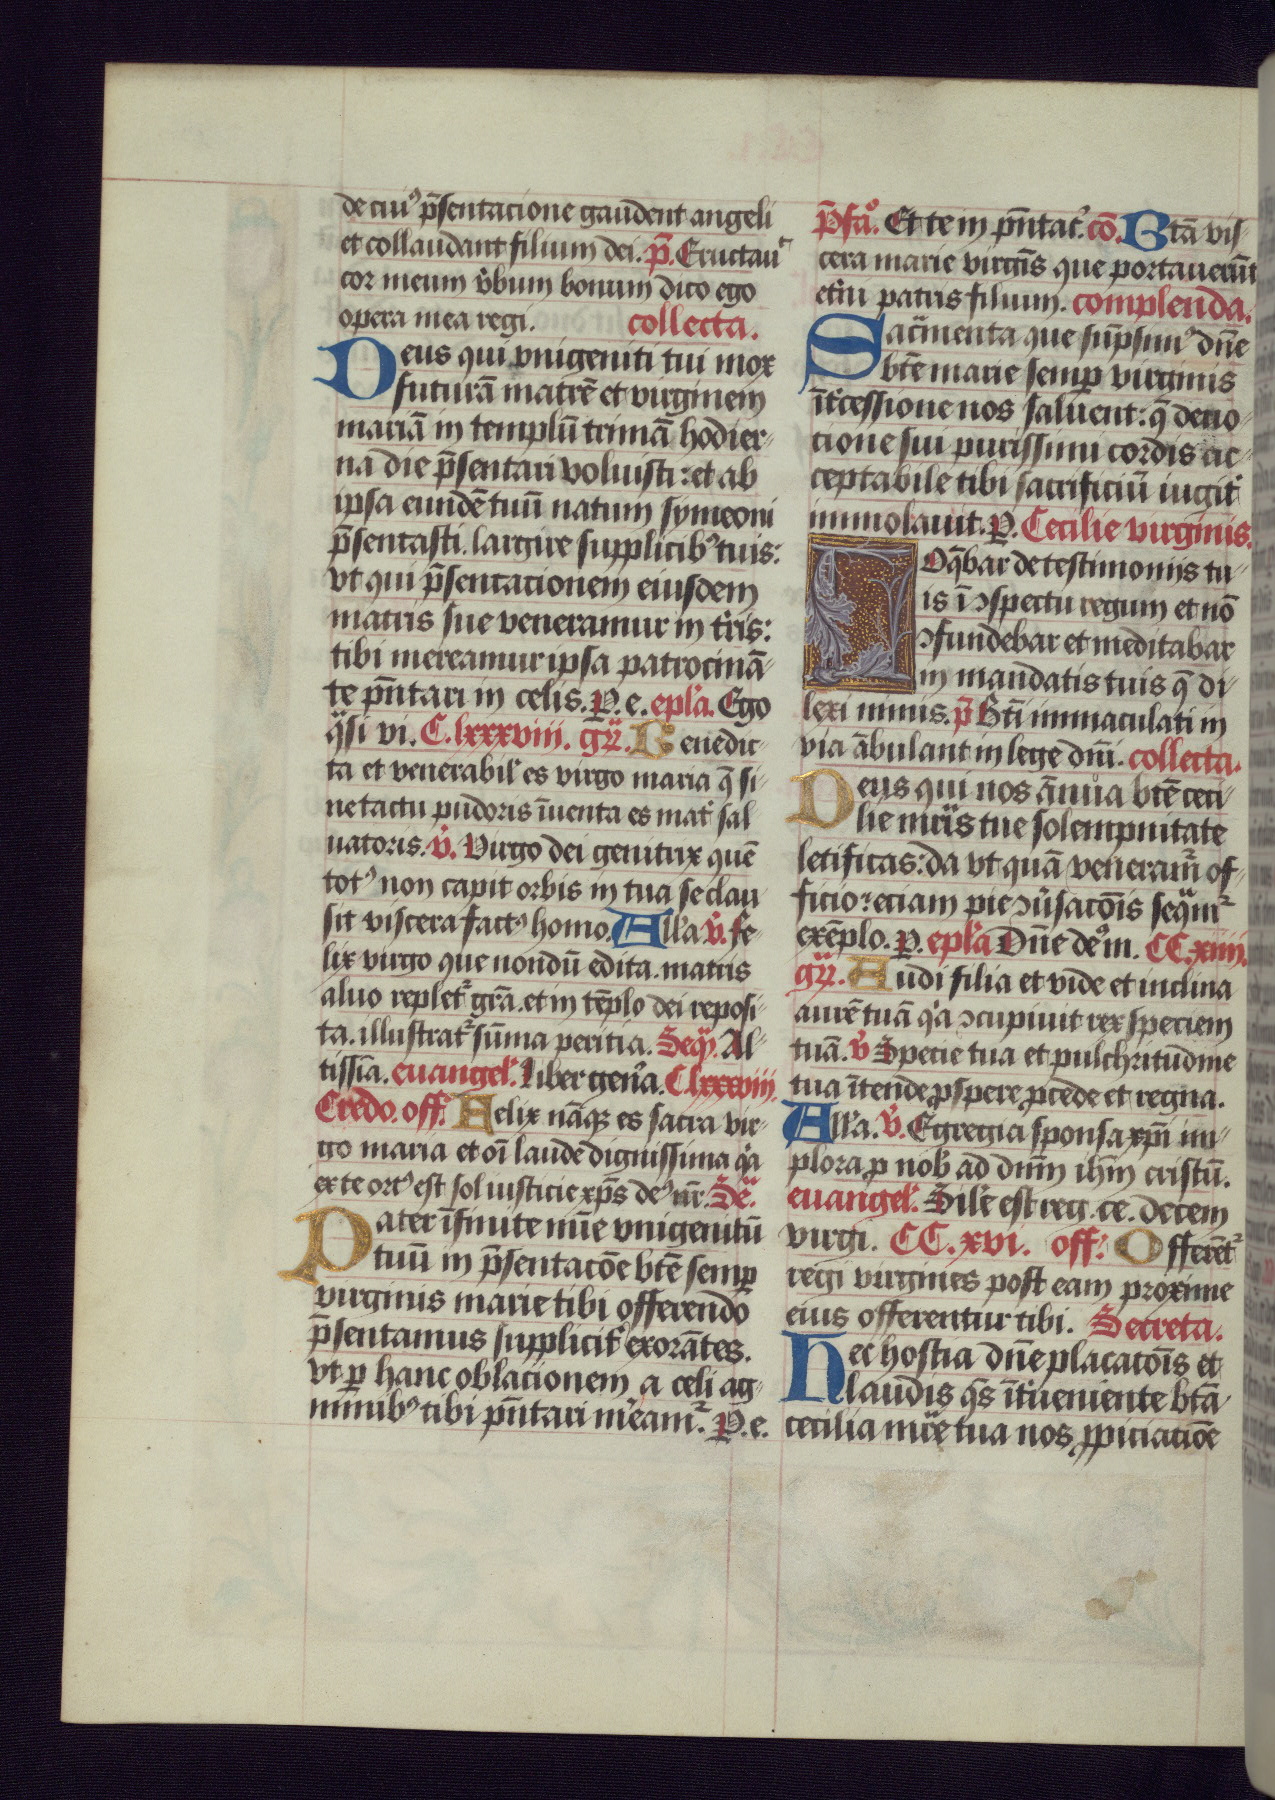 de cui⁹ p̄sentacione gaudent angeli
et collaudant filium dei. p̄. Eructau͛
cor meum v̓bum bonum dico ego
opera mea regi. collecta.
Deus qui vnigeniti tui mox
futurā matrē et virginem
mariā in templū trimā hodier-
na die p̄sentari voluisti: et ab
ipsa eundē tuū natum symeoni
p̄sentasti. largire supplicib⁹ tuis:
vt qui p̄sentacionem eiusdem
matris sue veneramur in t̓ris:
tibi mereamur ipsa patrocinā-
te p̄ntari in celis. P. e. ep̄la. Ego
q̈si vi. C. lxxxviii. gr̄. Benedic-
ta et venerabil' es virgo maria q̄ si-
ne tactu pudoris īuenta es mat̓ sal-
uatoris. v̓. Virgo dei genitrix quē
tot⁹ non capit orbis in tua se clau-
sit viscera fact⁹ homo. All'a v̓. fe-
lix virgo que nondū edita. matris
aluo replet᷑ gr̄a. et in tēplo dei reposi-
ta. illustrat᷑ sūma peritia. Seq̄. Al-
tissīa. euangel'. Liber gen̓a. Clxxxviii.
Credo. off̄. Felix nāq; es sacra vir-
go maria et oī laude dignissima q̓a
ex te ort⁹ est sol iusticie xp̄s de⁹ nr̄. Se͞.
Pater īfinite mīe vnigenitū
tuū in p̄sentacōe btē semp̱
virginis marie tibi offerendo
p̄sentamus supplicit̓ exorātes.
vt p̱ hanc oblacionem a celi ag-
minib⁹ tibi p̄ntari m̓eam᷑. P. e.
p̄fa͛. Et te in p̄ntac̓. cō. Btā vis-
cera marie virgīs que portauerūt
et̓ni patris filium. complenda.
Sac̈menta que sūpsim⁹ dn̄e
btē marie semp̱ virginis
īt̓cessione nos saluent: q̄ deuo-
cione sui purissimi cordis ac-
ceptabile tibi sacrificiū iugit̓
immolauit. P. Cecilie virginis.
Loq̄bar de testimonijs tu-
is ī ↄspectu regum et nō
ↄfundebar et meditabar
in mandatis tuis q̄ di-
lexi nimis. p̄ Bti immaculati in
via ābulant in lege dn̄i. collecta.
Deus qui nos ānua btē ceci-
lie mr̄is tue solempnitate
letificas: da vt quā veneram᷑ of-
ficio: eciam pie ↄu̓sacōis seq̈m᷑
exēplo. P. ep̄la Dn̄e de⁹ m. CC. xiiii.
gr̄. Audi filia et vide et inclina
aurē tuā q̓a ↄcupiuit rex speciem
tuā. v̓ Specie tua et pulchritudine
tua ītende ꝓspere ꝓcede et regna.
All'a. v̓. Egregia sponsa xp̄i im-
plora p̱ nob̓ ad dn̄m ih̄m cristū.
euangel'. Sil'e est reg. ce. decem
virgi. CC. xvi. off̄. Offerēt᷑
regi virgines post eam proxime
eius offerentur tibi. Secreta.
Hec hostia dn̄e placacōis et
laudis q̄s īt̓ueniente btā
cecilia mr̄e tua nos ꝓpiciacōe